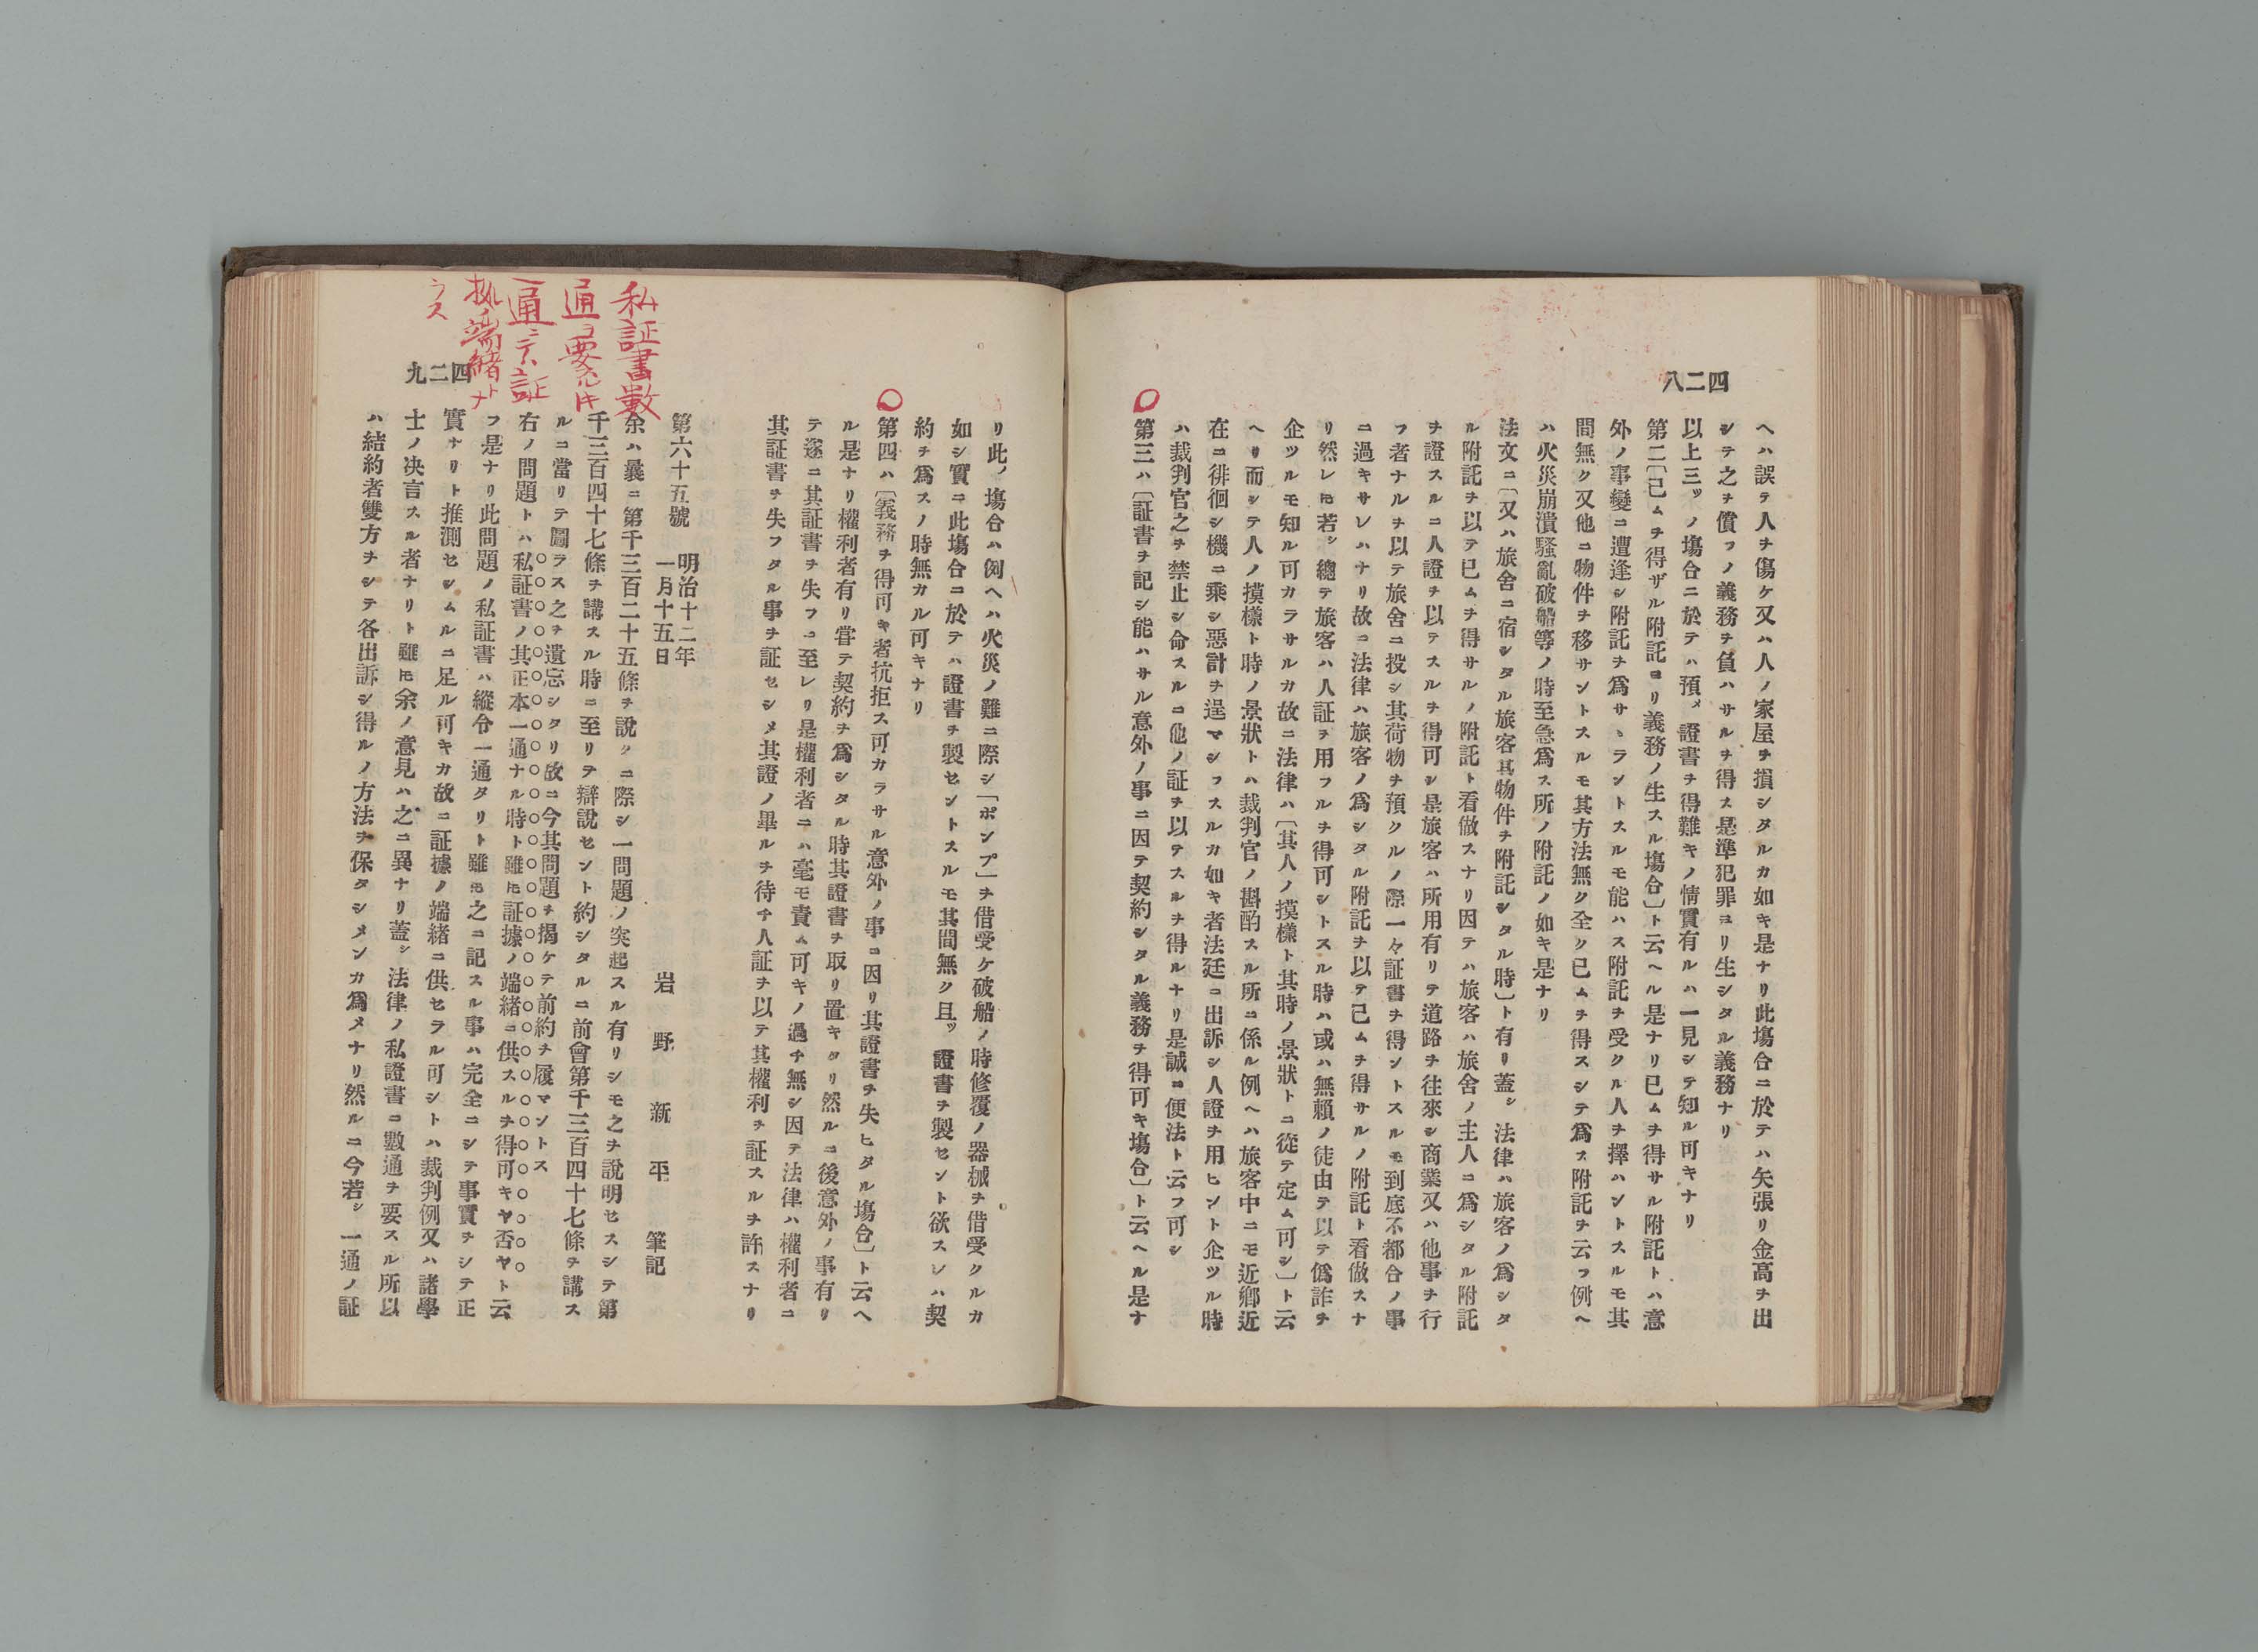 四二八
ヘハ誤テ人ヲ傷ケ又ハ人ノ家屋ヲ損シタルカ如キ是ナリ此塲合ニ於テハ矢張リ金高ヲ出
シテ之ヲ償フノ義務ヲ負ハサルヲ得ス是準犯罪ヨリ生シタル義務ナリ
以上三ッノ塲合ニ於テハ預メ證書ヲ得難キノ情實有ルハ一見シテ知ル可キナリ
第二〔已ムヲ得ザル附託ヨリ義務ノ生スル塲合〕ト云ヘル是ナリ已ムヲ得サル附託トハ意
外ノ事變ニ遭逢シ附託ヲ爲サヽラントスルモ能ハス附託ヲ受クル人ヲ擇ハントスルモ其
間無ク又他ニ物件ヲ移サントスルモ其方法無ク全ク已ムヲ得スシテ爲ス附託ヲ云フ例ヘ
ハ火災崩潰騷亂破船等ノ時至急爲ス所ノ附託ノ如キ是ナリ
法文ニ〔又ハ旅舍ニ宿シタル旅客其物件ヲ附託シタル時〕ト有リ蓋シ法律ハ旅客ノ爲シタ
ル附託ヲ以テ已ムヲ得サルノ附託ト看做スナリ因テハ旅客ハ旅舍ノ主人ニ爲シタル附託
ヲ證スルニ人證ヲ以テスルヲ得可シ是旅客ハ所用有リテ道路ヲ往來シ商業又ハ他事ヲ行
フ者ナルヲ以テ旅舍ニ投シ其荷物ヲ預クルノ際一々証書ヲ得ントスルモ到底不都合ノ事
ニ過キサレハナリ故ニ法律ハ旅客ノ爲シタル附託ヲ以テ已ムヲ得サルノ附託ト看做スナ
リ然レ𪜈若シ總テ旅客ハ人証ヲ用フルヲ得可シトスル時ハ或ハ無賴ノ徒由テ以テ僞詐ヲ
企ツルモ知ル可カラサルカ故ニ法律ハ〔其人ノ摸樣ト其時ノ景狀トニ從テ定ム可シ〕ト云
ヘリ而シテ人ノ摸樣ト時ノ景狀トハ裁判官ノ斟酌スル所ニ係ル例ヘハ旅客中ニモ近鄕近
在ニ徘徊シ機ニ乘シ惡計ヲ逞マシフスルカ如キ者法廷ニ出訴シ人證ヲ用ヒント企ツル時
ハ裁判官之ヲ禁止シ命スルニ他ノ証ヲ以テスルヲ得ルナリ是誠ニ便法ト云フ可シ
第三ハ〔証書ヲ記シ能ハサル意外ノ事ニ因テ契約シタル義務ヲ得可キ塲合〕ト云ヘル是ナ
リ此ノ塲合ハ例ヘハ火災ノ難ニ際シ「ポンプ」ヲ借受ケ破船ノ時修覆ノ器械ヲ借受クルカ
如シ實ニ此塲合ニ於テハ證書ヲ製セントスルモ其間無ク且ッ證書ヲ製セント欲スレハ契
約ヲ爲スノ時無カル可キナリ
第四ハ〔義務ヲ得可キ者抗拒ス可カラサル意外ノ事ニ因リ其證書ヲ失ヒタル塲合〕ト云ヘ
ル是ナリ權利者有リ甞テ契約ヲ爲シタル時其證書ヲ取リ置キタリ然ルニ後意外ノ事有リ
テ遂ニ其証書ヲ失フニ至レリ是權利者ニハ毫モ責ム可キノ過チ無シ因テ法律ハ權利者ニ
其証書ヲ失フタル事ヲ証セシメ其證ノ畢ルヲ待チ人証ヲ以テ其權利ヲ証スルヲ許スナリ
第六十五號 明治十二年
一月十五日
岩野新平 筆記
余ハ曩ニ第千三百二十五條ヲ說クニ際シ一問題ノ突起スル有リシモ之ヲ說明セスシテ第
千三百四十七條ヲ講スル時ニ至リテ辯說セント約シタルニ前會第千三百四十七條ヲ講ス
ルニ當リテ圖ラス之ヲ遺忘シタリ故ニ今其問題ヲ揭ケテ前約ヲ履マントス
右ノ問題トハ私証書ノ其正本一通ナル時ト雖𪜈証據ノ端緒ニ供スルヲ得可キヤ否ヤト云
フ是ナリ此問題ノ私証書ハ縱令一通タリト雖𪜈之ニ記スル事ハ完全ニシテ事實ヲシテ正
實ナリト推測セシムルニ足ル可キカ故ニ証據ノ端緒ニ供セラル可シトハ裁判例又ハ諸學
士ノ决言スル者ナリト雖𪜈余ノ意見ハ之ニ異ナリ蓋シ法律ノ私證書ニ數通ヲ要スル所以
ハ結約者雙方ヲシテ各出訴シ得ルノ方法ヲ保タシメンカ爲メナリ然ルニ今若シ一通ノ証
四二九
私証書數
通ヲ要スルキ
一通ニテハ証
拠ノ端緒トナ
ラス